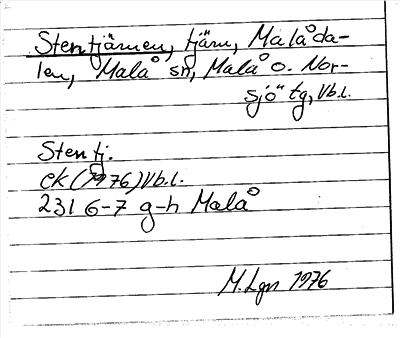 Stentjärnen, tjärn, Malåda-
len, Malå sn, Malå o. Nor-
sjö tg, Vb.l.
Stentj.
ek (1976) Vb.l.
231 6-7 g-h Malå
M. Lgn 1976